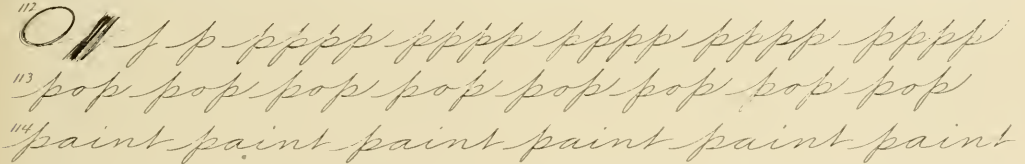 112 p pppp pppp pppp pppp pppp
113 pop pop pop pop pop pop pop pop
114 paint paint paint paint paint paint